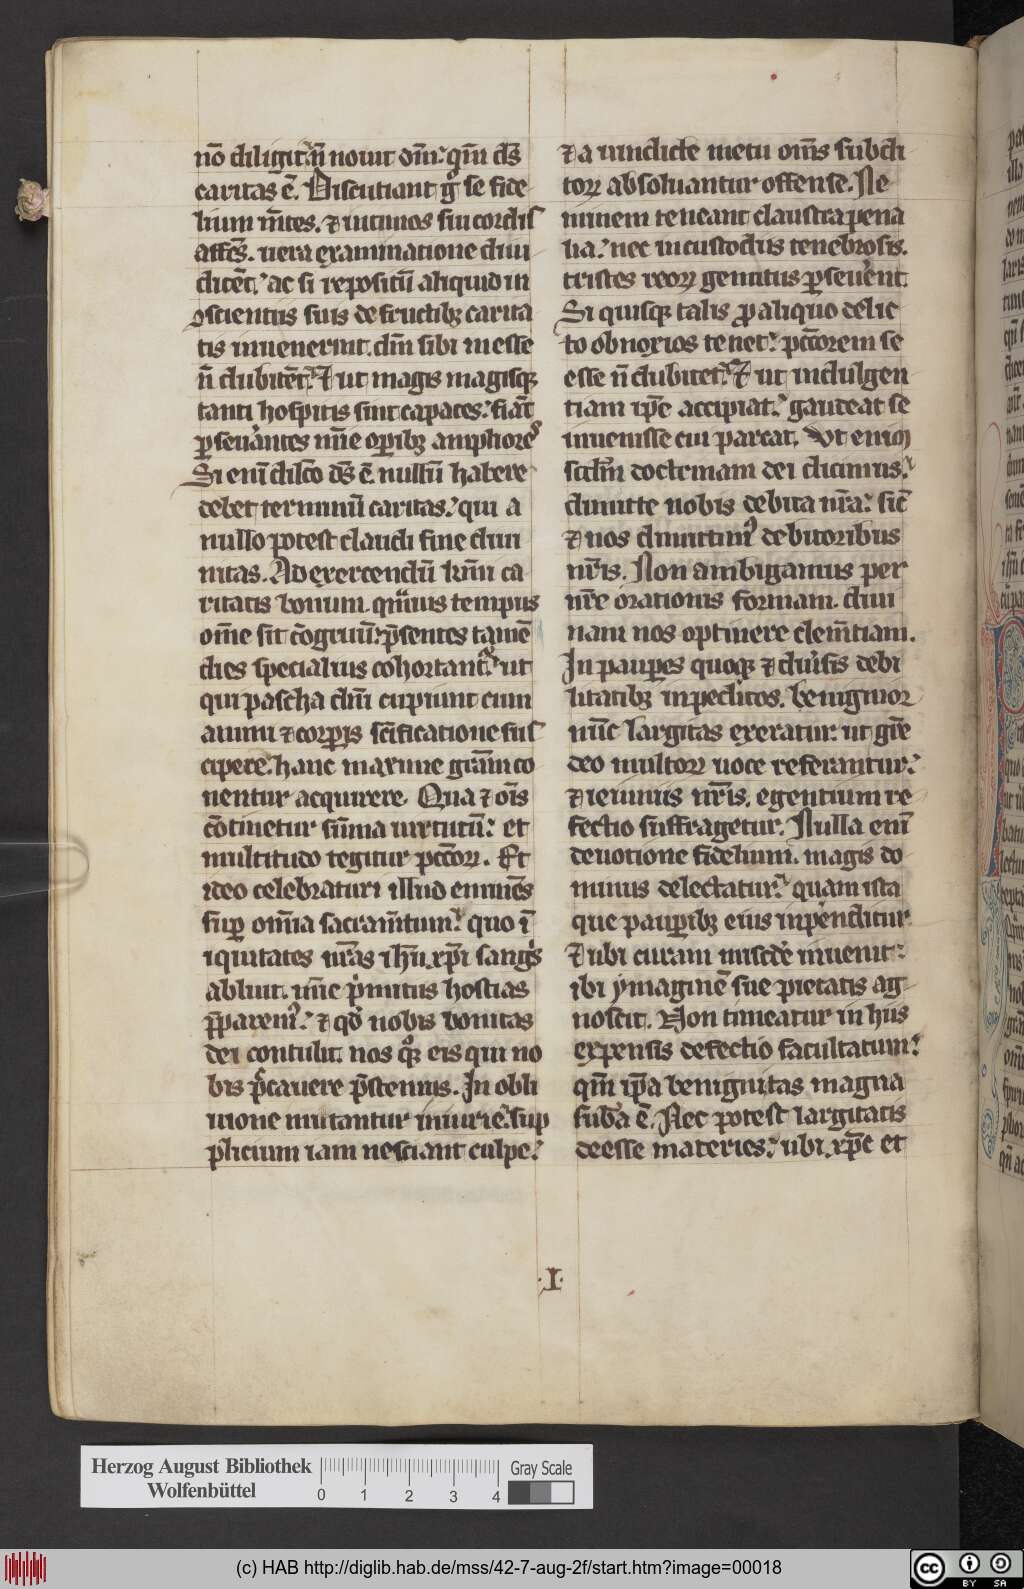 nō diligit. n̄ nouit dm̄. qm̄ ds̄
caritas ē. Discutiant g̊ se fide
lium m̄tes. ⁊ intimos sui cordis
affcs̄. uera examinatione diiu
dicēt. ac si repositū aliquid in
ↄscientiis suis de fructibꝫ carita
tis inuenerint. dm̄ sibi inesse
n̄ dubitēt. Et ut magis magisqꝫ
tanti hospitis sint capaces. fiāt
ꝑseuantes mīe oꝑibꝫ ampliores
Si enī dilc̄o ds̄ ē. nullū habere
debet terminū caritas. qui a
nullo potest claudi fine diui
nitas. Ad exercendū kmī ca
ritatis bonum. quīuis tempus
om̄e sit ↄ̄gruū. p̄sentes tamē
dies specialius cohortant. ut
qui pascha dn̄i cupiunt cum
animi ⁊ corꝑis scīficatione sus
cipere. hanc maxime grām co
nentur acquirere. Qua ⁊ oīs
ↄ̄tinetur sūma uirtutū. et
multitudo tegitur pcc̄oꝝ. Et
ideo celebraturi illud eminēs
suꝑ omīa sacram̄tum. quo ī
iquitates nrās ih̄u xp̄i sangs
abluit. mīe p̄mitus hostias
p̄paremꝰ. ⁊ qd̄ nobis bonitas
dei contulit nos qꝫ eis qui no
bis pͨcauere p̄stemus. In obli
uione mittantur iniurie. sup
plicium iam nesciant culpe.
⁊ a uindicte metu oms̄ subdi
toꝝ absoluantur offense. Ne
minem teneant claustra pena
lia. nec in custodiis tenebrosis.
tristes reoꝝ gemitus ꝑseuēnt.
Si quisqꝫ talis ꝓ aliquo delic
to obnoxios tenet. pcc̄orem se
esse n̄ dubitet. Et ut indulgen
tiam ip̄e accipiat. gaudeat se
inuenisse cui parcat. Vt enim
scdm̄ doctrinam dei dicimus.
dimitte nobis debita nr̄a. sic̄
⁊ nos dimittimꝰ debitoribus
nr̄is. Non ambigamus per
nr̄e orationis formam. diui
nam nos optinere clem̄tiam.
In pauꝑes quoqꝫ ⁊ diuˀsis debi
litatibꝫ inpeditos. benignior
nūc largitas exeratur. ut gr̄e
deo multoꝝ uoce referantur.
⁊ ieiuniis nr̄is. egentium re
fectio suffragetur. Nulla enī
deuotione fidelium. magis do
minus delectatur. quam ista
que pauꝑibꝫ eius inpenditur
Et ubi curam miscd̄e inuenit.
ibi ymaginē sue pietatis ag
noscit. Non timeatur in hiis
expensis defectio facultatum.
qm̄ ip̄a benignitas magna
subā ē. Nec potest largitatis
deesse materies. ubi xp̄c et
·I·
Herzog August Bibliothek
Wolfenbüttel
0 1 2 3 4
Gray Scale
(c) HAB http://diglib.hab.de/mss/42-7-aug-2f/start.htm?image=00018
cc BY SA